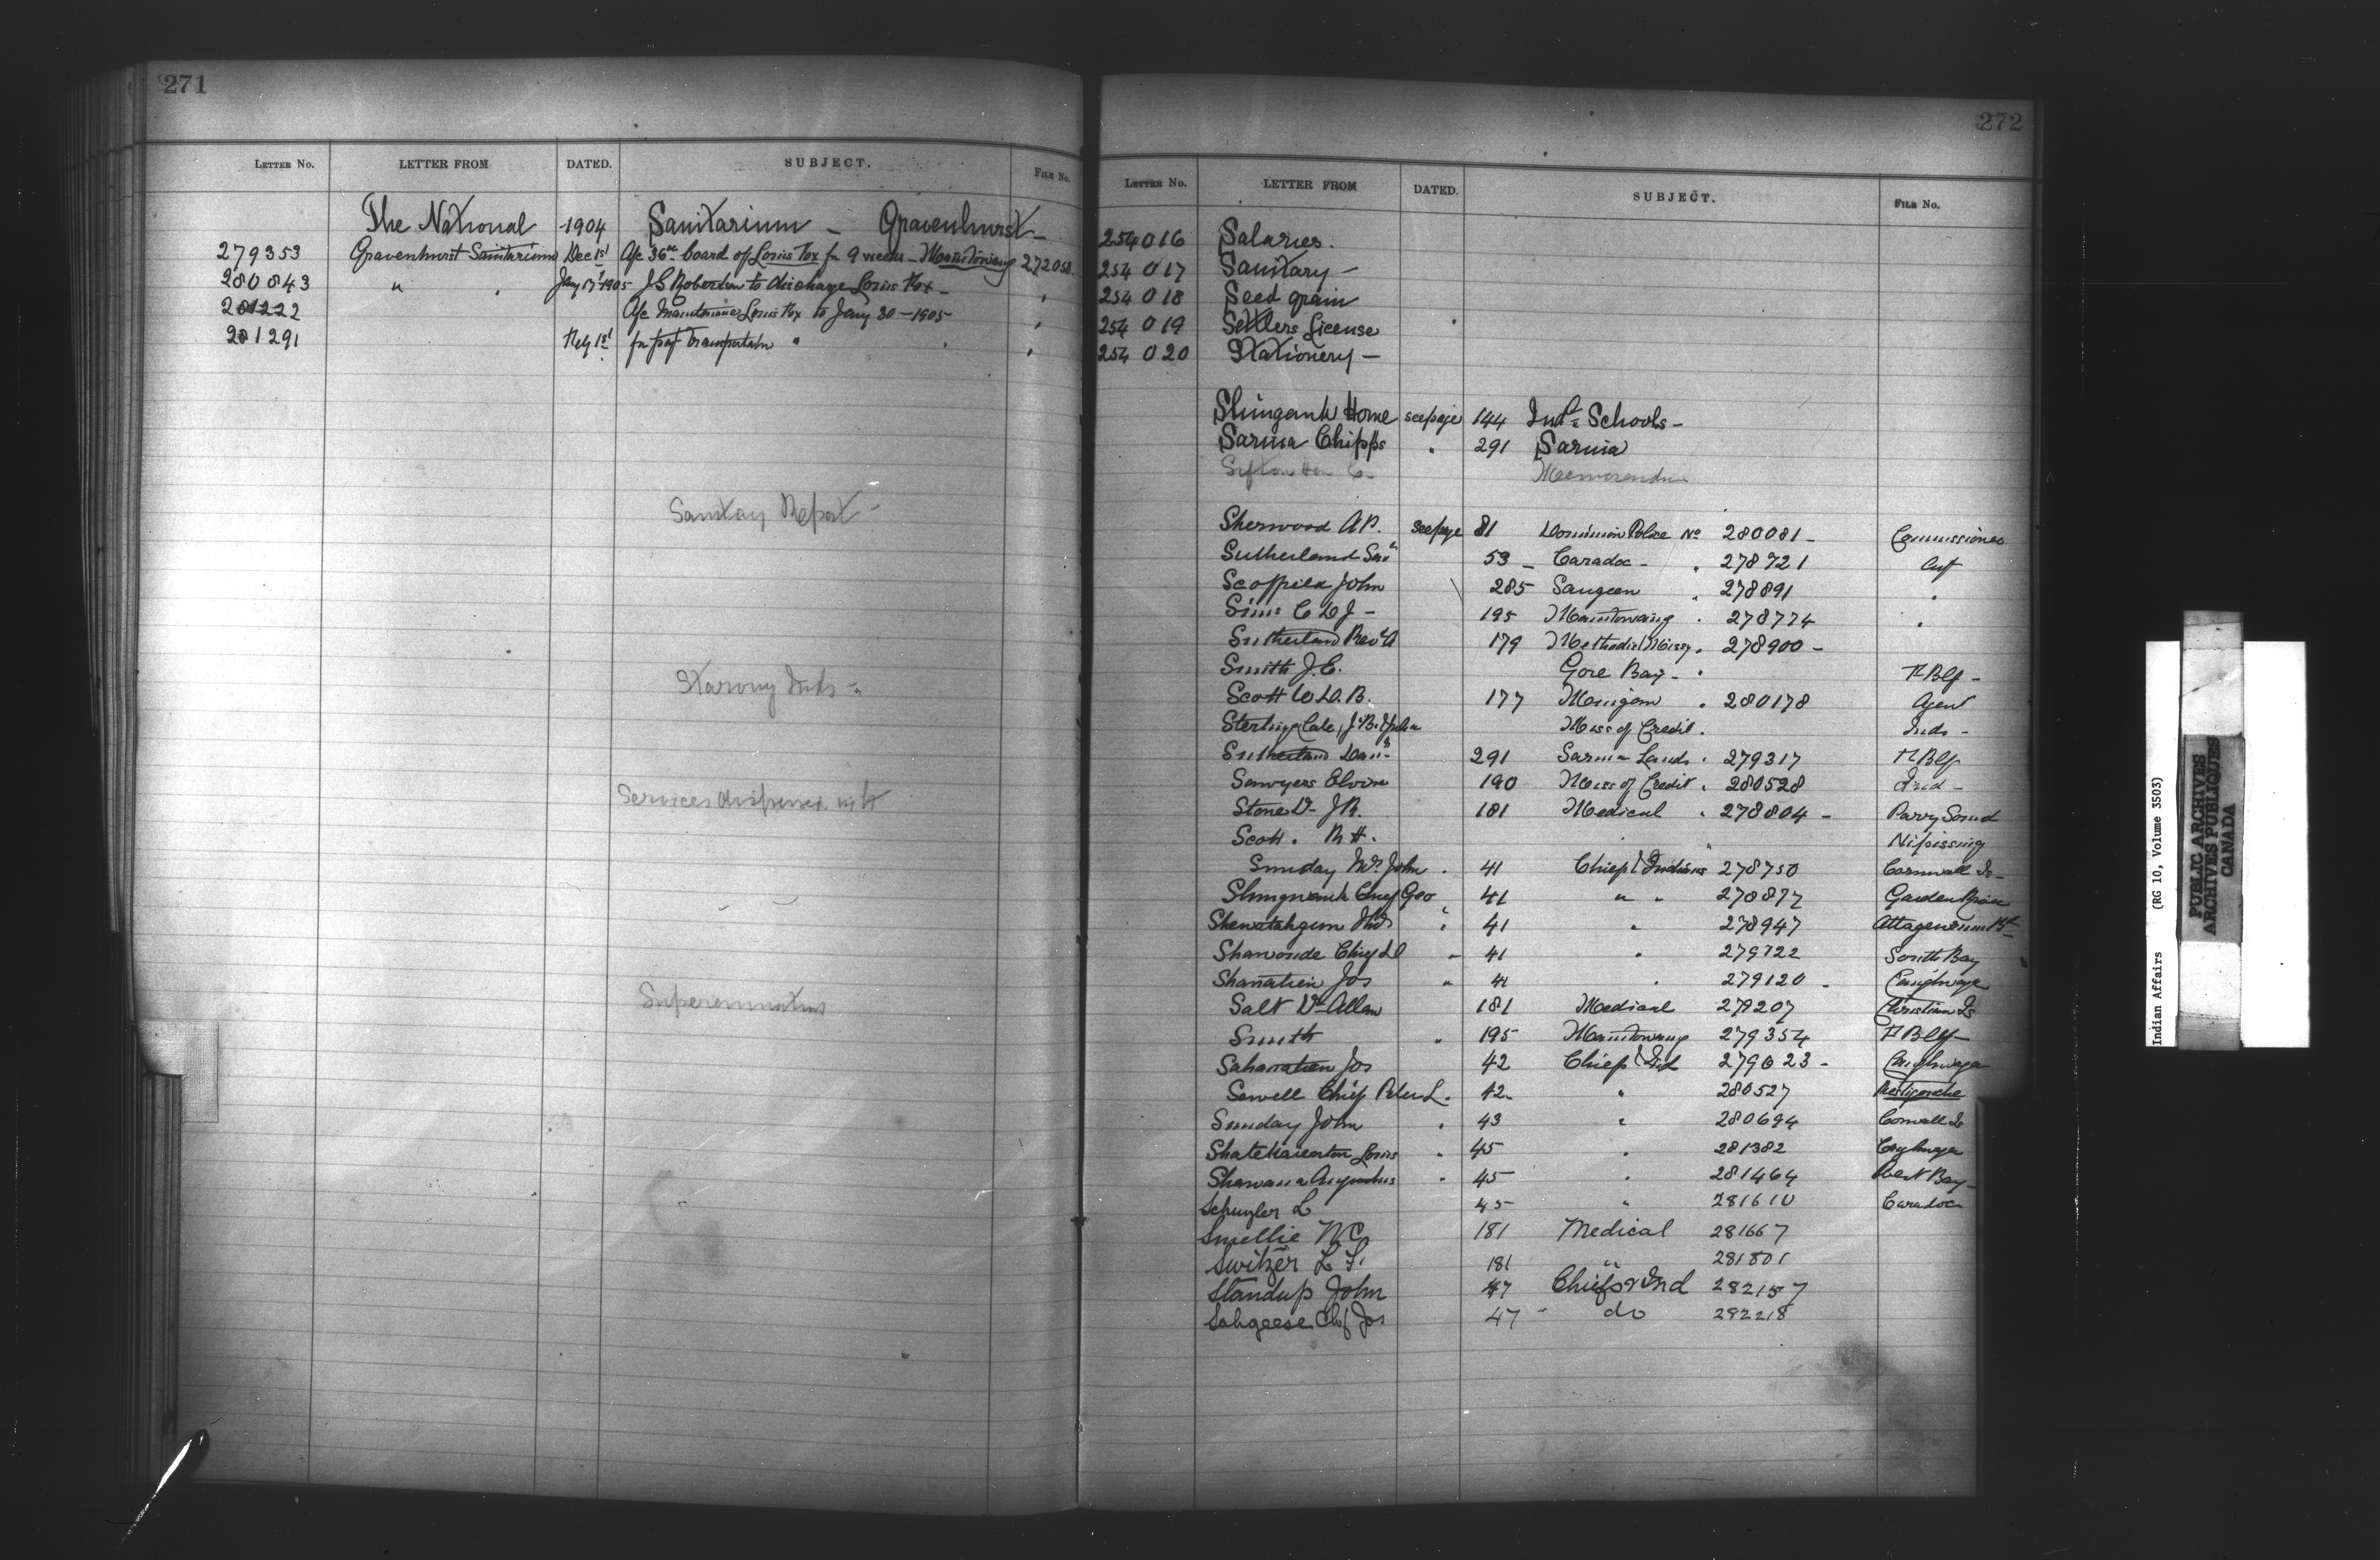 271
LETTER NO. LETTER FROM DATED. SUBJECT. FILE NO.
The National 1904 Sanitarium - Gravenhurst -
279353 Gravenhurst Sanitarium Dec 1st a/c 36 00 board of Louis Fox for 9 weeks - Manitowaning 272050
280843 " " Jany 17 1905 J.S. Robertson to discharge Louis Fox -
281222 a/c Maintenance Louis Fox to Jany 30 - 1905 -
281291 Feby 1st for transportation "
Sanitary Report -
Starving Inds -
Services dispensed with
272
LETTER NO. LETTER FROM DATED. SUBJECT. FILE NO.
254016 Salaries.
254017 Sanitary -
254018 Seed grain
254019 Settlers License
254020 Stationery -
Shingwauk Home see page 144 Indl Schools -
Sarnia Chipps " 291 Sarnia
Sifton Hon C. Memoranda
Sherwood A.P. see page 81 Dominion Police No 280081 - Commissioner
Sutherland 53 - Caradoc - " 278721
Scoffield John 285 Saugeen " 278891 "
Sims C L D J - 195 Manitowaning " 278774 "
Sutherland Rev A 179 Methodist Missy " 278900 -
Smith J.E. Gore Bay - "
Scott W.D.B. 177 " 280178 Agent
Sterling Cale Miss of Credit. Inds -
Sutherland 291 Sarnia Lands " 279317
Sawyers Elvira 190 Miss of Credit " 280528 Ind -
Stone Dr J R. 181 Medical " 278804 - Parry Sound
Scott. R H. " Nipissing
Sunday Mr John . 41 Chiefs & Indians 278750 Cornwall Is -
Shingwauk Chief Geo 41 " " 278877 Garden River
Shewatahgun " 41 " 278947
Shawonde Chief " 41 " 279722 South Bay
Shanatien Jos " 41 " 279120 - Caughnawaga
Salt Dr Allan 181 Medical 279207 Christian Is
Smith " 195 Manitowaning 279354
Sahanatien Jos 42 Chiefs & Ind 279823 - Caughnawaga
Sewell Chief Peter L. 42 " 280527 Restigouche
Sunday John . 43 " 280694 Cornwall Is
Shatekaienton Louis . 45 " 281382 Caughnawaga
Shawana Augustus . 45 " 281464 West Bay -
Schuyler L 45 " 281610 Caradoc
Smellie W C 181 Medical 281667
Switzer L F. 181 " 281801
Standup John 47 Chiefs & Ind 282157
Sahgeese Chf Jos 47 - do 282218
Indian Affairs (RG 10, Volume 3503)
PUBLIC ARCHIVES
ARCHIVES PUBLIQUES
CANADA